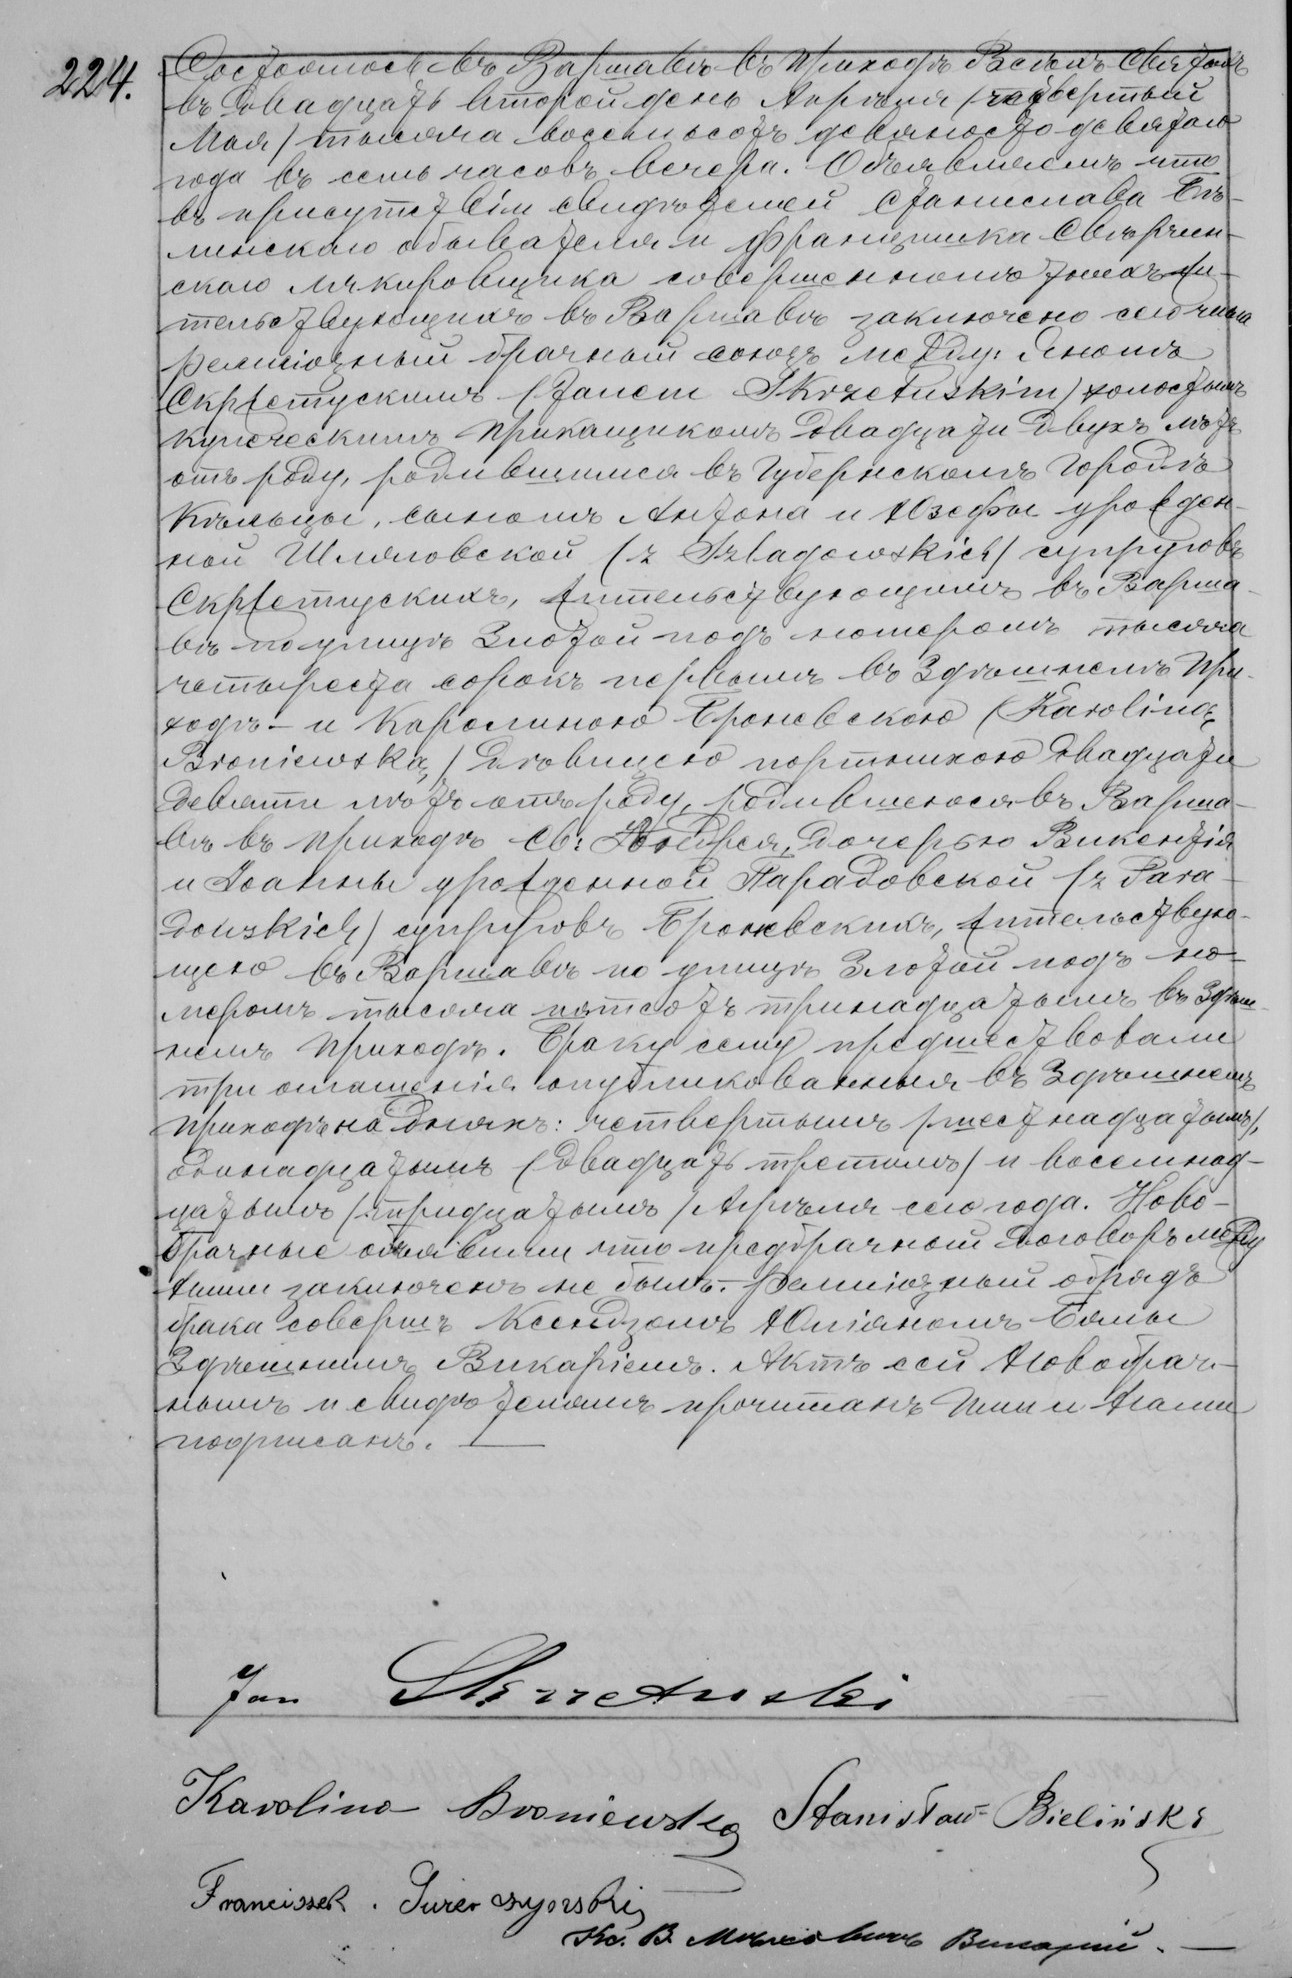 224.
Состоялось въ Варшавѣ въ приходѣ Всѣхъ Святыхъ
въ двадцать второй день Апрѣля /четвертый
Мая/ тысяча восемьсотъ девяносто девятаго
года въ семь часовъ вечера. Объявляемъ что
въ присутствіи свидѣтелей Станислава Бѣ-
линскаго обывателя и Францишка Свѣрчин-
скаго лакировщика совершеннолѣтнихъ жи-
тельствующихъ въ Варшавѣ заключено сего числа
религіозный брачный союзъ между: Яномъ
Скржетускимъ (Janem Skrzetuskim) холостымъ
купеческимъ прикащикомъ двадцати двухъ лѣтъ
отъ роду, родившимся въ Губернскомъ городѣ
Кѣльцы, сыномъ Антона и Юзефы урожден-
ной Шлаговской (z Szlagowskich) супруговъ
Скржетускихъ, жительствующимъ въ Варша-
вѣ по улицѣ Злотой подъ номеромъ тысяча
четыреста сорокъ первымъ въ здѣшнемъ при-
ходѣ – и Каролиною Броневскою (Karoliną
Broniewską) дѣвицею портнихою двадцати
девяти лѣтъ отъ роду, родившеюся въ Варша-
вѣ въ приходѣ Св: Андрея, дочерью Викентія
и Іоанны урожденной Парадовской (z Para-
dowskich) супруговъ Броневскихъ, жительствую-
щею въ Варшавѣ по улицѣ Злотой подъ но-
меромъ тысяча пятсотъ тринадцатымъ въ здѣш-
немъ приходѣ. Браку сему предшествовали
три оглашенія опубликованныя въ здѣшнемъ
приходѣ на дняхъ: четвертымъ /шестнадцатымъ/,
одинадцатымъ (двадцать третимъ) и восемнад-
цатымъ /тридцатымъ/ Апрѣля сего года. Ново-
брачные объявили что предбрачный договоръ между
ними заключенъ не былъ. – Религіозный обрядъ
брака совершъ Ксендзомъ Юліаномъ
Здѣшнимъ Викаріемъ. Актъ сей Новобрач-
нымъ и свидѣтелямъ прочитанъ Ими и Нами
подписанъ.
Jan Skrzetuski
Karolina Broniewska Stanisław Bieliński
Franciszek
Кс. В. Викарій.